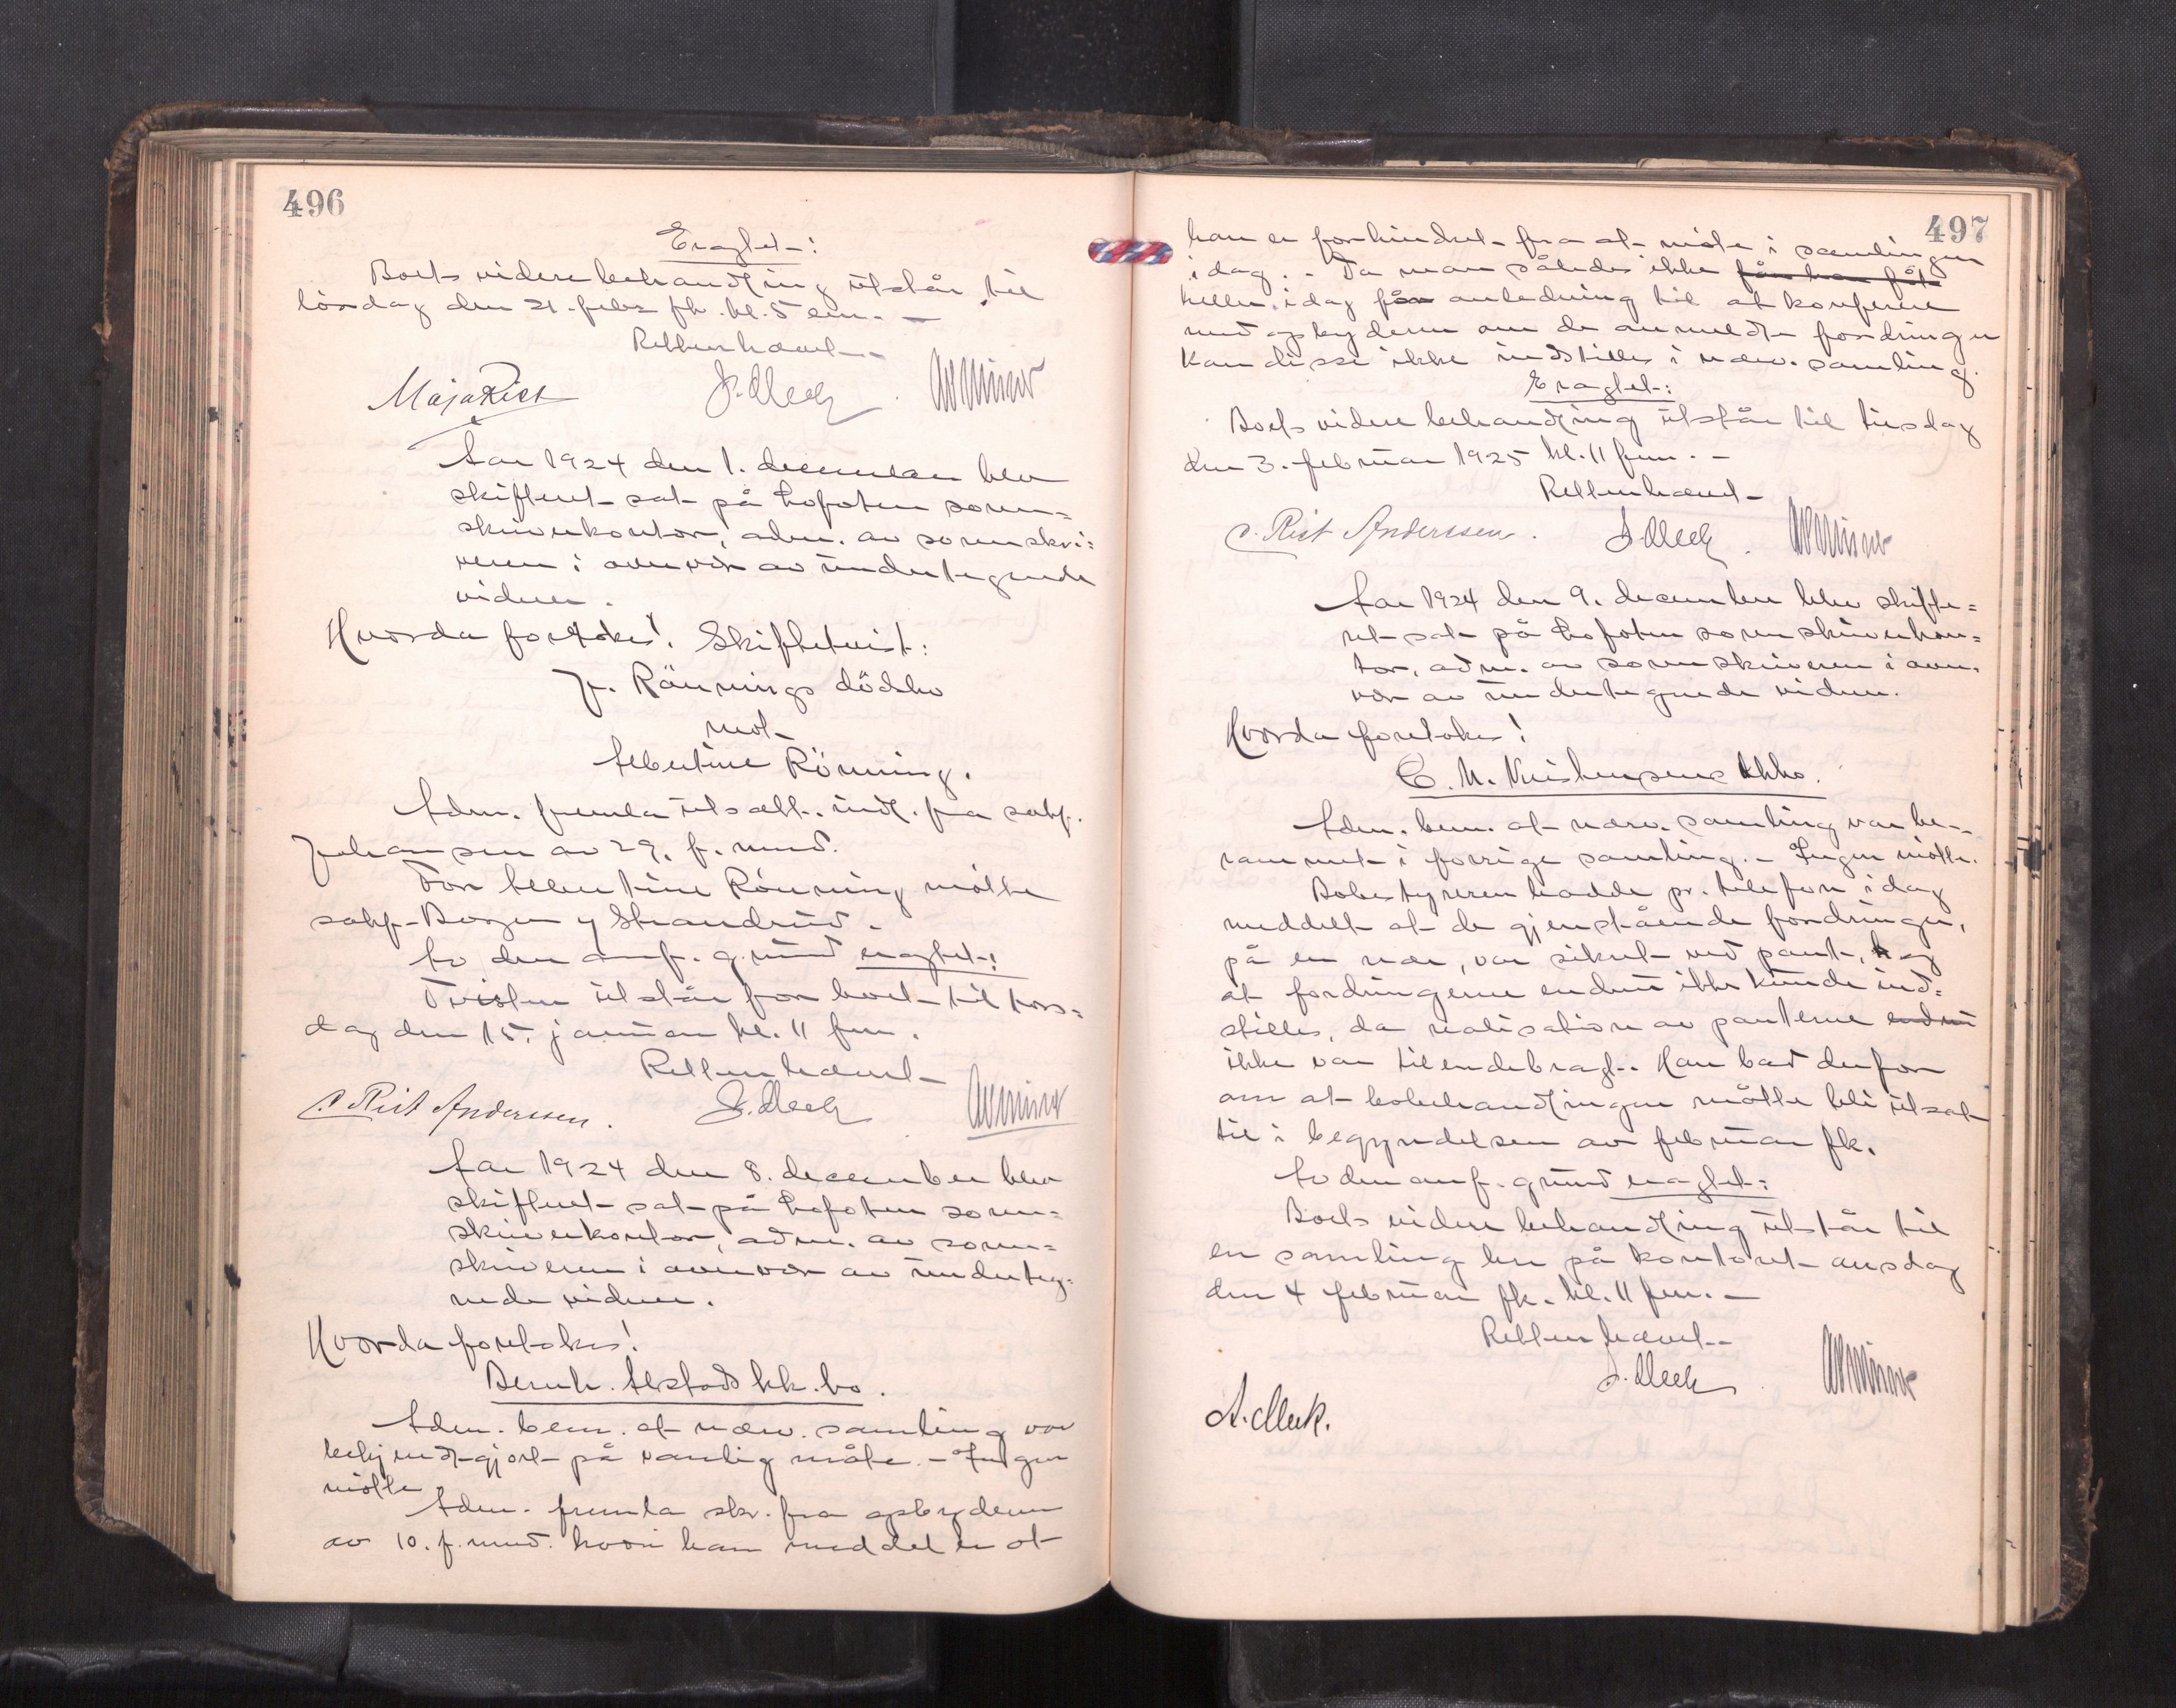 496
Eragtet:
Boets videre behandling utstår til
lörsdag den 21. febr fk. kl. 5 em. —
Retten hævet.-
Maja Rist J. Meek
Aar 1924 den 1. december blev
skifteret sat på Lofoten soren=
skriverkontor, adm. av sorenskri=
veren i overvær av undertegnede
vidner.
Hvorda foretokes! Skiftetvist:
J. Rönnings dödsbo
mot
Albertine Rönning.
Adm. fremla utsatt. indl. fra sakf.
Johansen av 29. f. mnd.
For Albertine Rönning mötte
sakf. Borgen y Strandrud.
Av den anf. grund eragtet:
Tvisten utstår for boet til tors=
dag den 15. januar kl. 11 fm.
Retten hævet
C. Rist Anderssen. J. Meek
Aar 1924 den 8. december blev
skifteret sat på Lofoten soren=
skriverkontor, adm. av soren=
skriveren i overvær av underteg=
nede vidner.
Hvorda foretokes!
Bernh. Alstads kk. bo.
Adm. bem. at nærv. samling var
bekjendtgjort på vanlig måte. - Ingen
mötte.
Adm. fremla skr. fra opbyderen
av 10. f. mnd. hvori han meddeler at
497
han er forhindret fra at möte i samlingen
idag. - Da man således ikke
heller idag får anledning til at konferere
med opbyderen om de anmeldte fordringer
kan disse ikke indstilles i nærv. samling.
Eragtet:
Boets videre behandling utstår til tirsdag
den 3. februar 1925 kl. 11 fm. -
Retten hævet
C. Rist Anderssen. J. Meek.
Aar 1924 den 9. december blev skifte=
ret sat på Lofoten sorenskriverkon=
tor, adm. av sorenskriveren i over.
vær av undertegnede vidner.
Hvorda foretokes!
C. M. Kristensens kkbo.
Adm. bem. at nærv. samling var be-
rammet i forrige samling. - Ingen mötte.
Bobestyreren hadde pr. telefon idag
meddelt at de gjenstående fordringer,
på en nær, var sikret ved pant, og
at fordringerne endnu ikke kunde ind=
stilles, da realisation av panterne endnu
ikke var tilendebragt. Han bad derfor
om at bobehandlingen måtte bli utsat
til i begyndelsen av februar fk.
Av den anf. grund eragtet:
Boets videre behandling utstår til
en samling her på kontoret onsdag
den 4 februar fk. kl. 11 fm. -
Retten hævet.-
J. Meek
A. Meek.